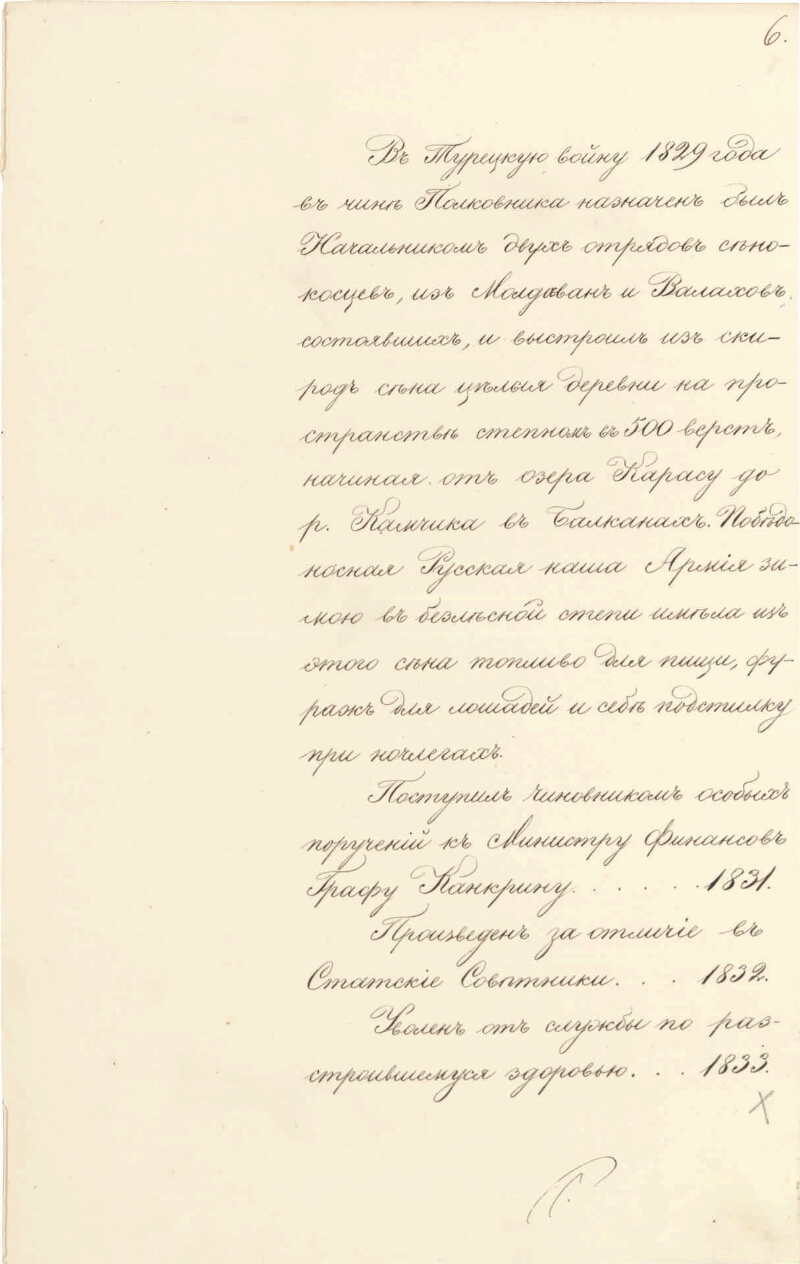 6.
Въ Турецкую войну 1829 года
въ чинѣ Полковника назначенъ былъ
Начальникомъ двухъ отрядовъ сѣно-
косцевъ, изъ Молдаванъ и Валаховъ
состоявшихъ, и выстроилъ изъ ски-
родъ сѣна цѣлыя деревни на про-
странствѣ степномъ въ 500 верстъ,
начиная отъ озера Карасу до
р. Камчика въ Балканахъ. Побѣдо-
носная Русская наша Армія зи-
мою въ безлѣсной степи имѣла изъ
этого сѣна топливо для пищи, фу-
ражъ для лошадей и себѣ подстилку
при ночлегахъ.
Поступилъ чиновникомъ особыхъ
порученій къ Министру Финансовъ
Графу Канкрину. . . . . . 1831.
Произведенъ за отличіе въ
Статскіе Совѣтники. . . 1832.
Уволенъ отъ службы по раз-
строившемуся здоровью. . . 1833.